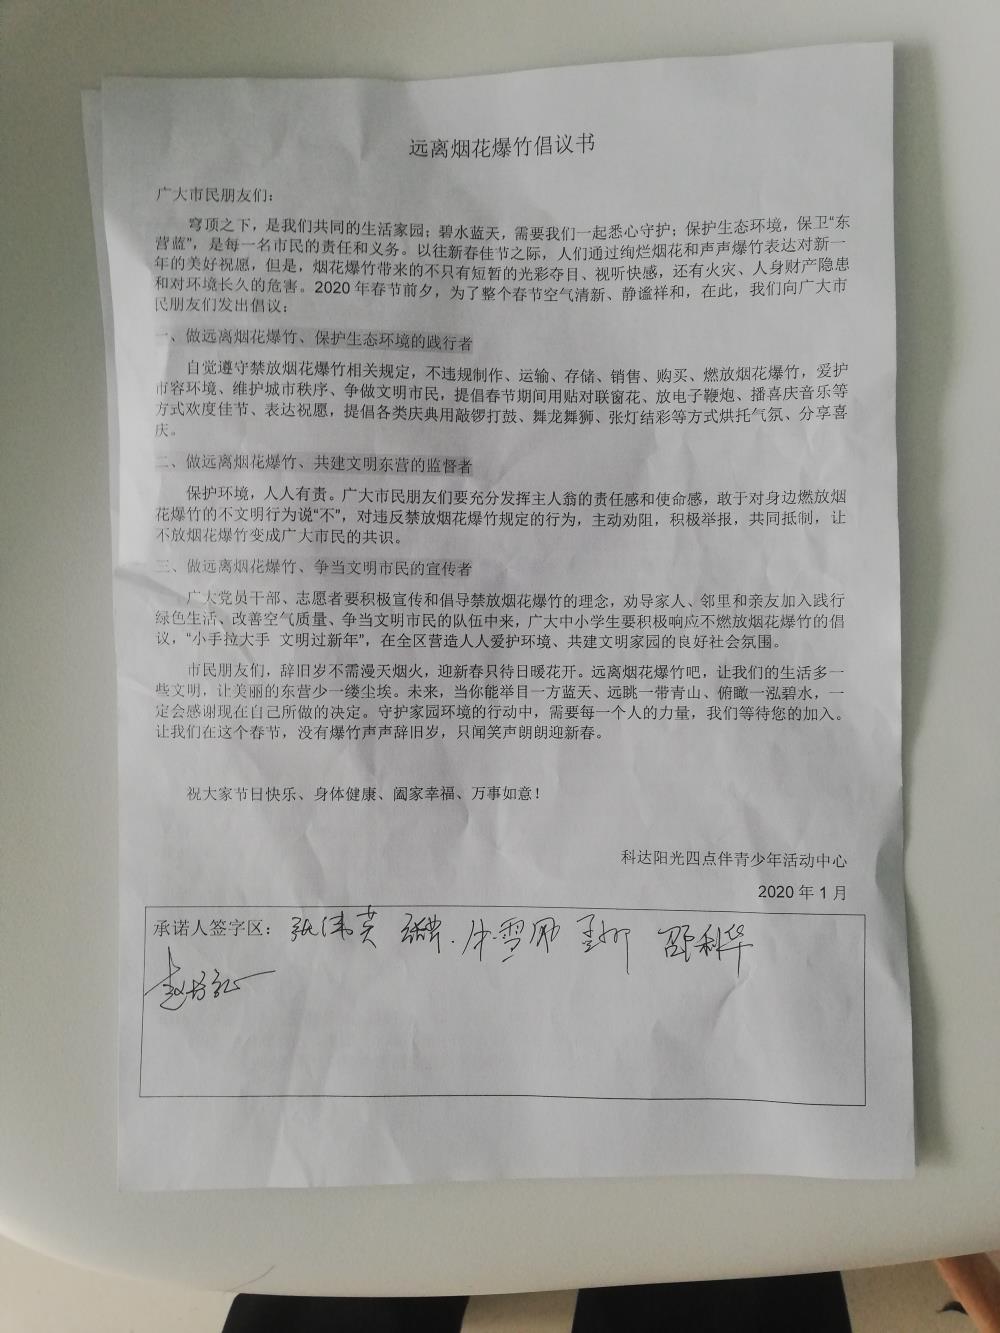 远离烟花爆竹倡议书
广大市民朋友们：
穹顶之下，是我们共同的生活家园；碧水蓝天，需要我们一起悉心守护；保护生态环境，保卫“东
营蓝”，是每一名市民的责任和义务。以往新春佳节之际，人们通过绚烂烟花和声声爆竹表达对新一
年的美好祝愿，但是，烟花爆竹带来的不只有短暂的光彩夺目、视听快感，还有火灾、人身财产隐患
和对环境长久的危害。2020 年春节前夕，为了整个春节空气清新、静谧祥和，在此，我们向广大市
民朋友们发出倡议：
一、做远离烟花爆竹、保护生态环境的践行者
自觉遵守禁放烟花爆竹相关规定，不违规制作、运输、存储、销售、购买、燃放烟花爆竹，爱护
市容环境、维护城市秩序、争做文明市民，提倡春节期间用贴对联窗花、放电子鞭炮、播喜庆音乐等
方式欢度佳节、表达祝愿，提倡各类庆典用敲锣打鼓、舞龙舞狮、张灯结彩等方式烘托气氛、分享喜
庆。
二、做远离烟花爆竹、共建文明东营的监督者
保护环境，人人有责。广大市民朋友们要充分发挥主人翁的责任感和使命感，敢于对身边燃放烟
花爆竹的不文明行为说“不”，对违反禁放烟花爆竹规定的行为，主动劝阻，积极举报，共同抵制，让
不放烟花爆竹变成广大市民的共识。
三、做远离烟花爆竹、争当文明市民的宣传者
广大党员干部、志愿者要积极宣传和倡导禁放烟花爆竹的理念，劝导家人、邻里和亲友加入践行
绿色生活、改善空气质量、争当文明市民的队伍中来，广大中小学生要积极响应不燃放烟花爆竹的倡
议，“小手拉大手 文明过新年”，在全区营造人人爱护环境、共建文明家园的良好社会氛围。
市民朋友们，辞旧岁不需漫天烟火，迎新春只待日暖花开。远离烟花爆竹吧，让我们的生活多一
些文明，让美丽的东营少一缕尘埃。未来，当你能举目一方蓝天、远眺一带青山、俯瞰一泓碧水，一
定会感谢现在自己所做的决定。守护家园环境的行动中，需要每一个人的力量，我们等待您的加入。
让我们在这个春节，没有爆竹声声辞旧岁，只闻笑声朗朗迎新春。
祝大家节日快乐、身体健康、阖家幸福、万事如意！
科达阳光四点伴青少年活动中心
2020 年 1 月
承诺人签字区： 张伟英 邵利华